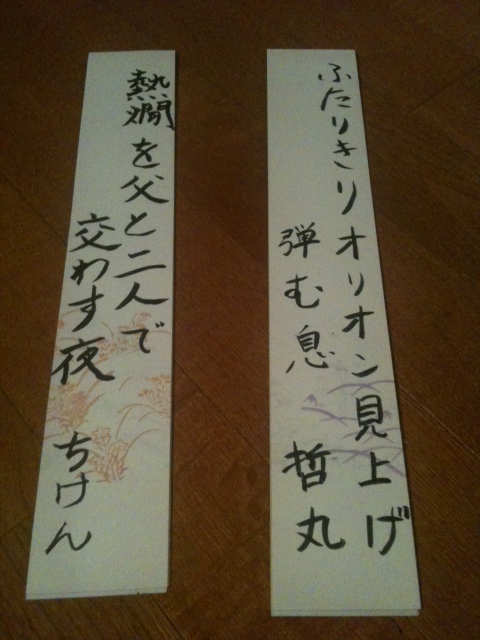 ふたりきりオリオン見上げ
弾む息 哲丸
熱燗を父と二人で
交わす夜 ちけん